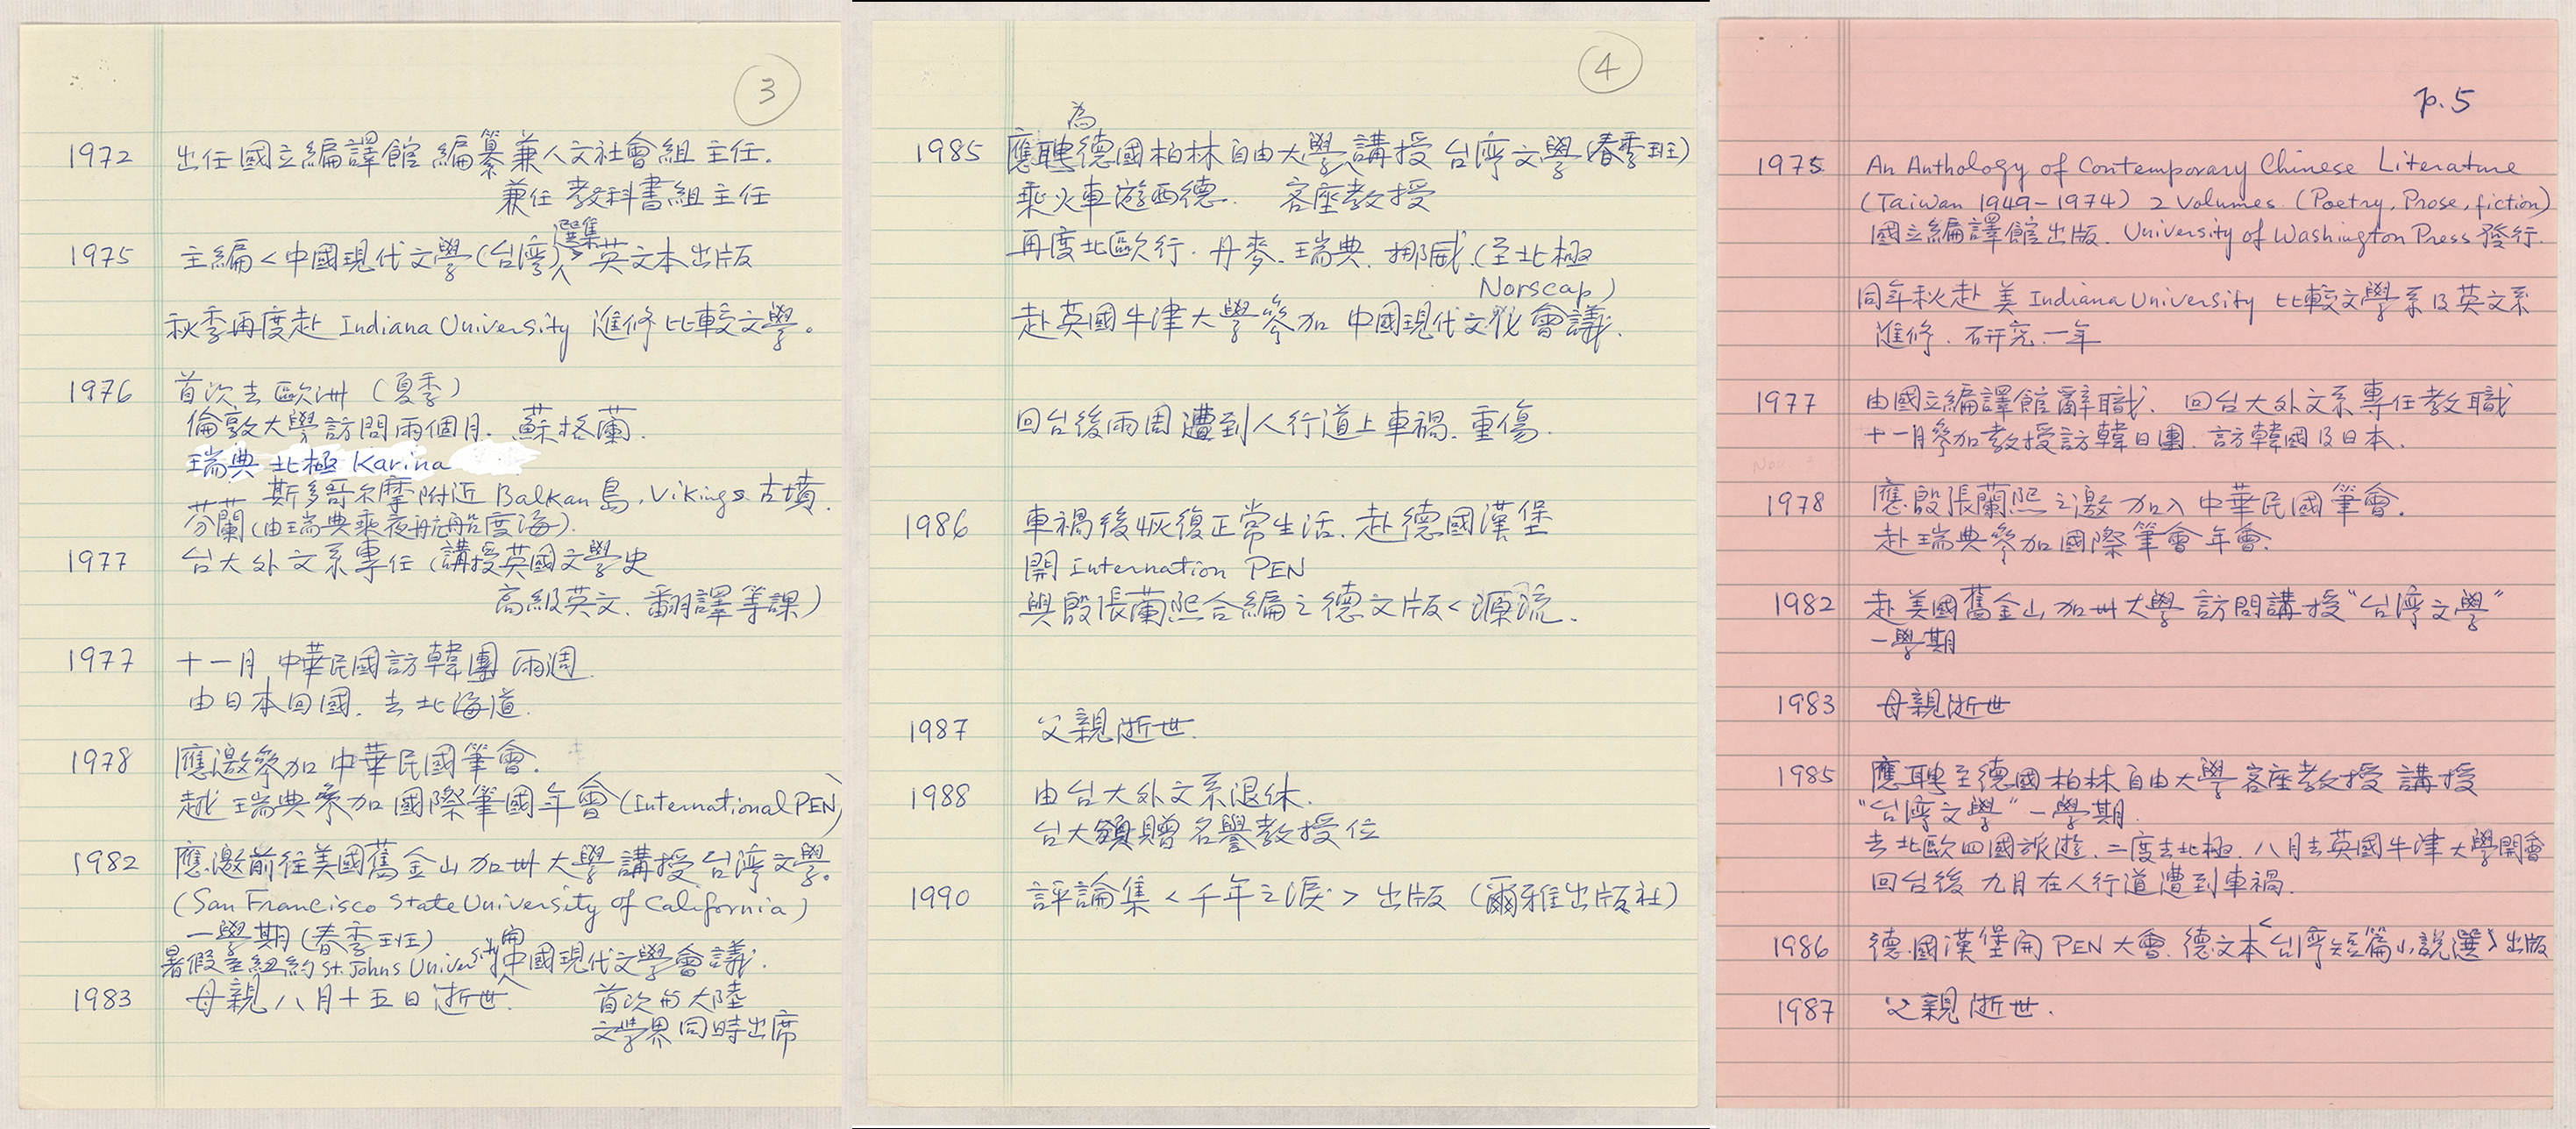 3
1972 出任國立編譯館 編纂兼人文社會組主任.
兼任 教科書組主任
1975 主編<中國現代文學(台灣)選集>英文本出版
秋季再度赴 Indiana University 進修比較文學。
1976 首次去歐洲 (夏季)
倫敦大學訪問兩個月. 蘇格蘭.
瑞典 北極 Karina
斯多哥尔摩附近 Balkan島, Vikings 古墳.
芬蘭(由瑞典乘夜航船度海).
1977 台大外文系專任 (講授英國文學史
高級英文、翻譯等課)
1977 十一月 中華民國訪韓團 兩週.
由日本回國. 去北海道.
1978 應邀參加中華民國筆會.
赴瑞典參加國際筆國年會(International PEN)
1982 應邀前往美國舊金山加州大學講授台灣文學。
(San Francisco State University of California)
一學期(春季班)
暑假至紐約 St. Johns University 開中國現代文學會議.
1983 母親八月十五日逝世. 首次與大陸
文學界同時出席
4
為
1985 應聘德國柏林自由大學講授台灣文學(春季班)
乘火車遊西德. 客座教授
再度北歐行. 丹麥. 瑞典. 挪威.(至北極
Norscap)
赴英國牛津大學參加 中國現代文化會議.
回台後兩周遭到人行道上車禍. 重傷.
1986 車禍後恢復正常生活. 赴德國漢堡
開 Internation PEN
與殷張蘭熙合編之德文版<源流.
1987 父親逝世.
1988 由台大外文系退休.
台大贈名譽教授位
1990 評論集<千年之淚> 出版 (爾雅出版社)
p.5
1975 An Anthology of Contemporary Chinese Literature
(Taiwan 1949-1974) 2 Volumes. (Poetry, Prose, fiction)
國立編譯館出版. University of Washington Press 發行.
同年秋赴美 Indiana University 比較文學系及英文系
進修. 研究一年
1977 由國立編譯館辭職. 回台大外文系專任教職
十一月參加教授訪韓日團. 訪韓國及日本.
Nov
1978 應殷張蘭熙之邀加入中華民國筆會.
赴瑞典參加國際筆會年會.
1982 赴美國舊金山加州大學訪問講授"台灣文學"
一學期
1983 母親逝世
1985 應聘至德國柏林自由大學客座教授 講授
"台灣文學"一學期.
去北歐四國旅遊. 二度去北極. 八月去英國牛津大學開會
回台後 九月在人行道遭到車禍.
1986 德國漢堡開 PEN 大會. 德文本<台灣短篇小說選>出版
1987 父親逝世.